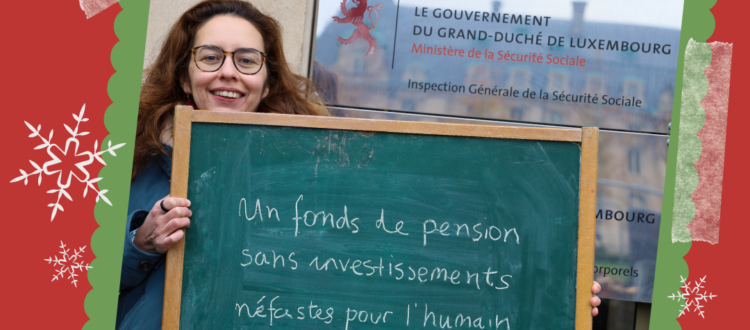 LE GOUVERNEMENT
DU GRAND-DUCHÉ DE LUXEMBOURG
Ministère de la Sécurité Sociale
Inspection Générale de la Sécurité Sociale
Un fonds de pension
sans investissements
néfastes pour l'humain